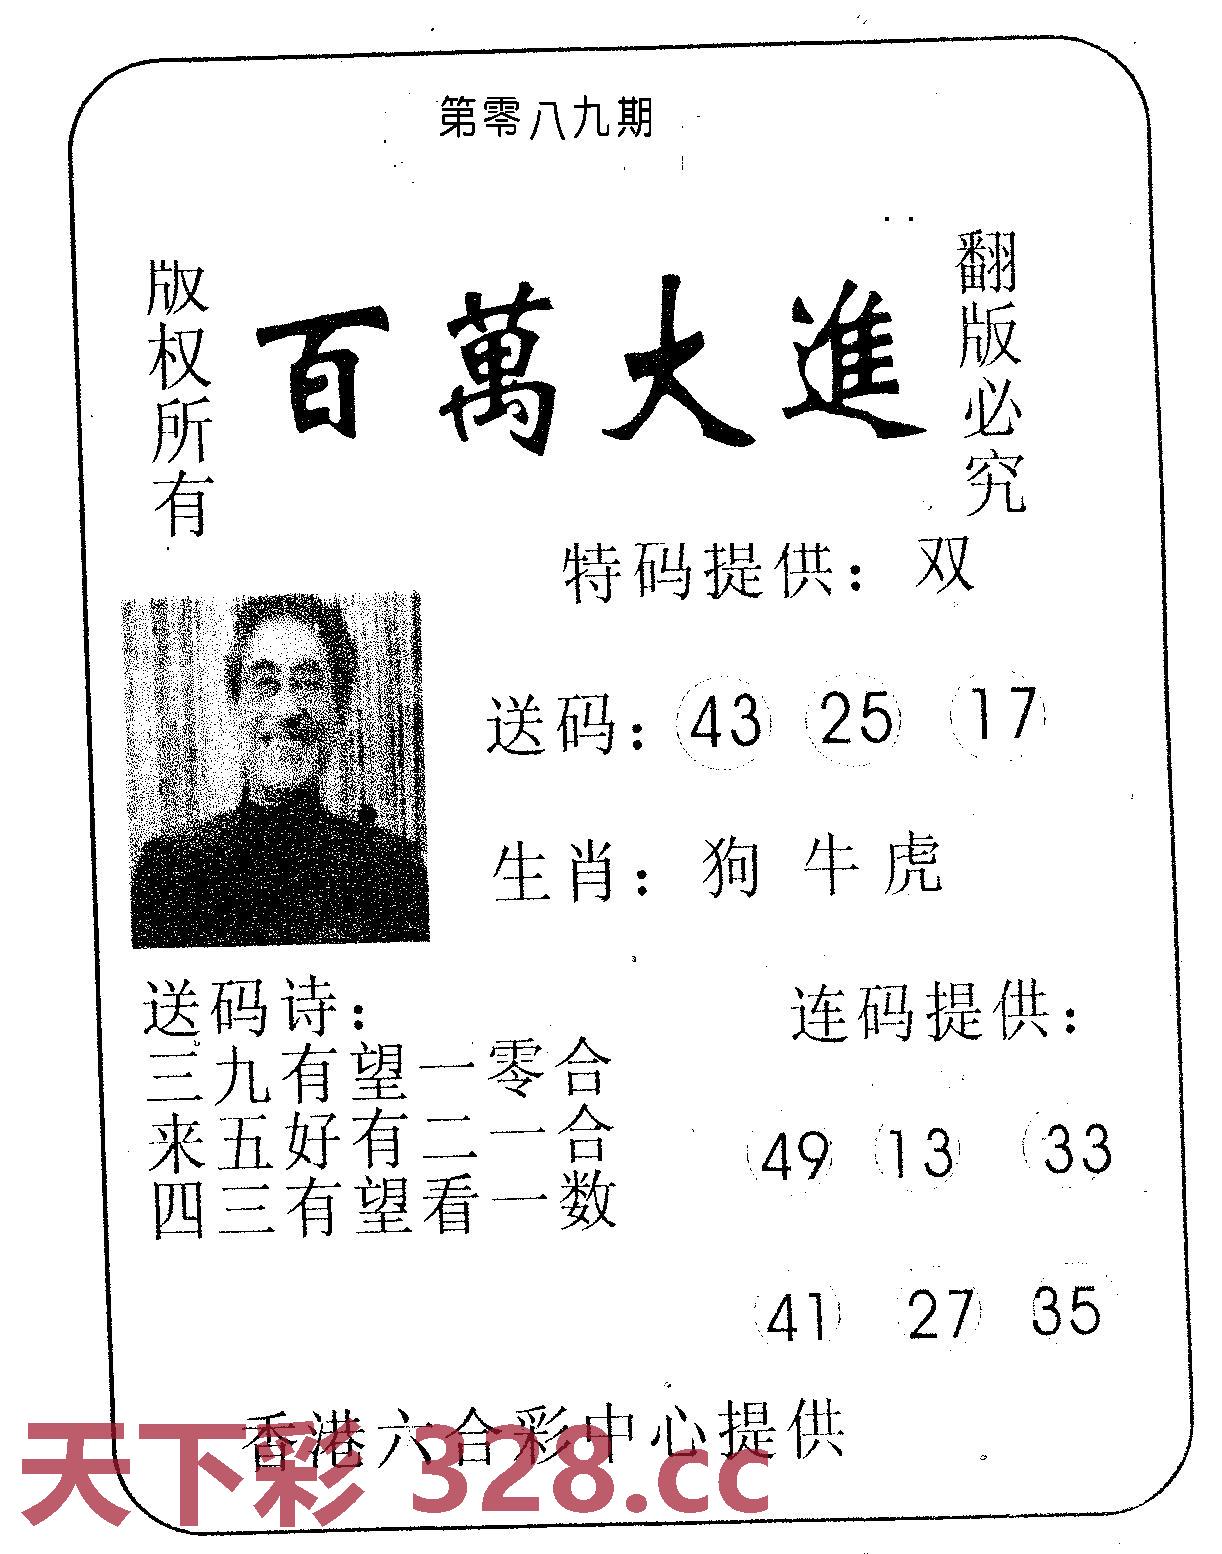 第零八九期
版权所有
百萬大進
翻版必究
特码提供：双
送码：43 25 17
生肖：狗 牛 虎
送码诗：
三九有望一零合
来五好有二一合
四三有望看一数
连码提供：
49 13 33
41 27 35
香港六合彩中心提供
天下彩 328.cc